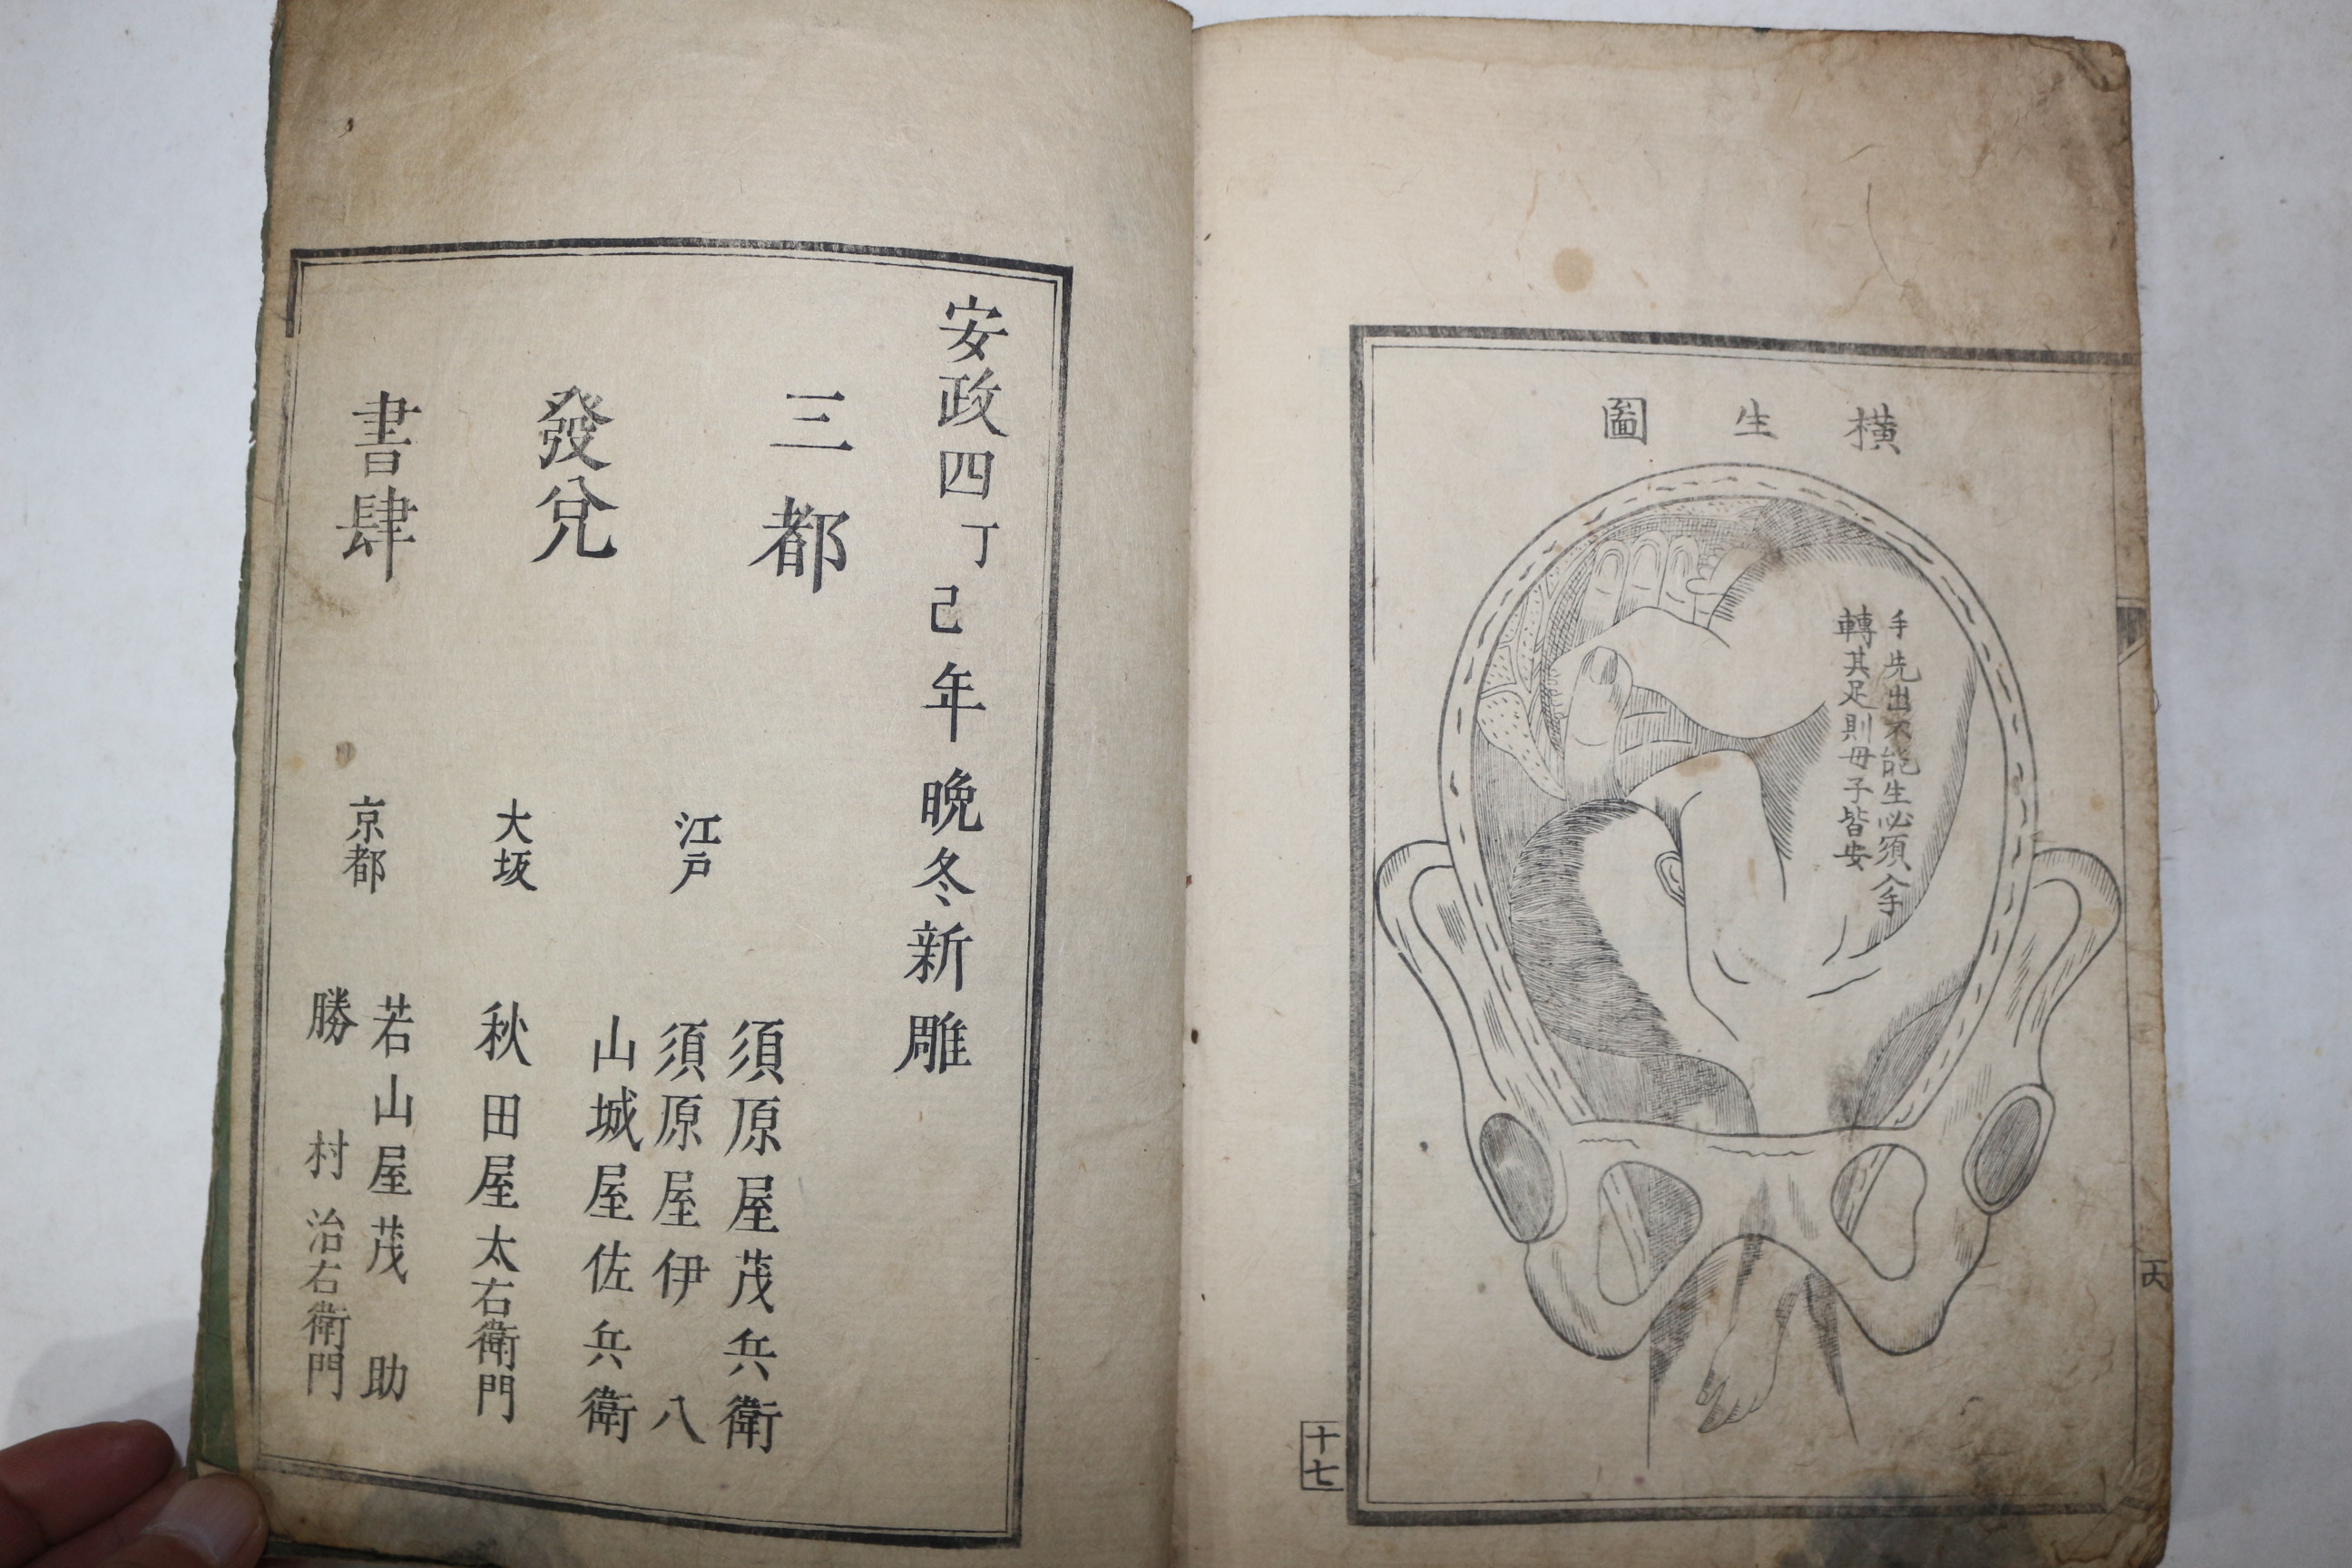 橫生圖
手先出不能生必須入手
轉其足則母子皆安
十七
安政四丁己年晩冬新雕
三都
發兌
書肆
江戸
須原屋茂兵衛
須原屋伊八
山城屋佐兵衛
大坂
秋田屋太右衛門
京都
若山屋茂助
勝村治右衛門